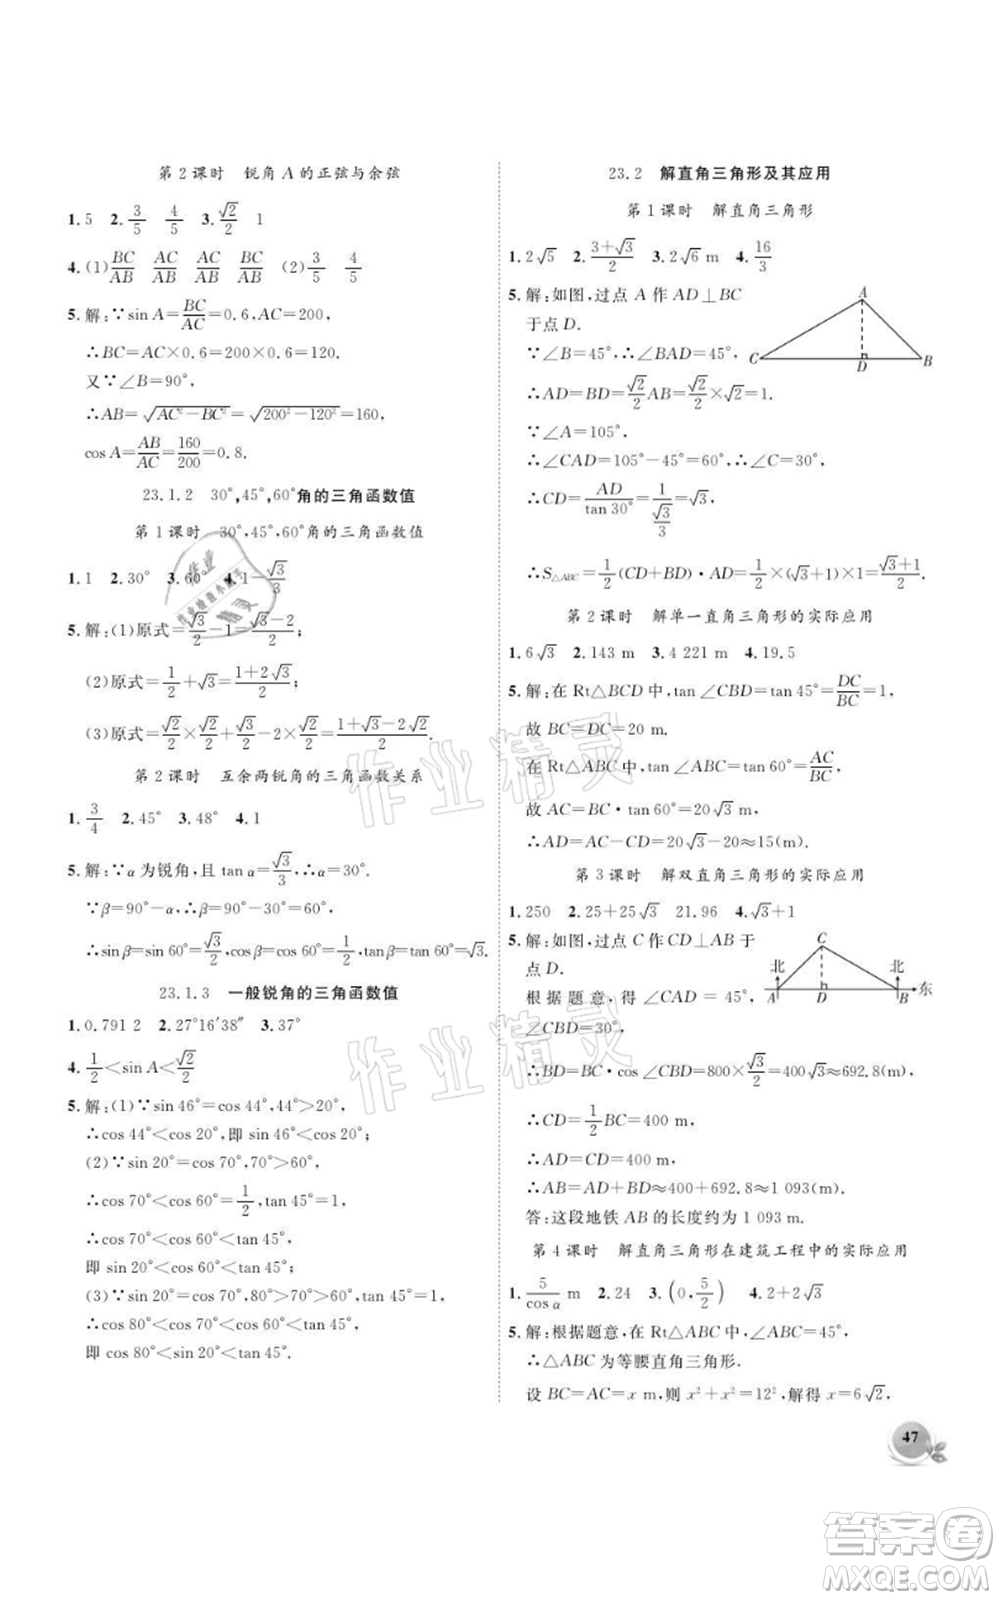 第2课时　锐角A的正弦与余弦
1. 5　2. 3/5　4/5　3. √2/2　1
4. (1) BC/AB　AC/AB　AC/AB　BC/AB　(2) 3/5　4/5
5. 解:∵sin A=BC/AC=0.6,AC=200,
∴BC=AC×0.6=200×0.6=120.
又∵∠B=90°,
∴AB=√(AC²-BC²)=√(200²-120²)=160,
cos A=AB/AC=160/200=0.8.
23.1.2　30°,45°,60°角的三角函数值
第1课时　30°,45°,60°角的三角函数值
1. 1　2. 30°　3. 60°　4. 1-√3/3
5. 解:(1)原式=√3/2-1=(√3-2)/2;
(2)原式=1/2+√3=(1+2√3)/2;
(3)原式=√2/2×√2/2+√3/2-2×√2/2=(1+√3-2√2)/2.
第2课时　互余两锐角的三角函数关系
1. 3/4　2. 45°　3. 48°　4. 1
5. 解:∵α为锐角,且 tan α=√3/3,∴α=30°.
∵β=90°-α,∴β=90°-30°=60°,
∴sin β=sin 60°=√3/2,cos β=cos 60°=1/2,tan β=tan 60°=√3.
23.1.3　一般锐角的三角函数值
1. 0.791 2　2. 27°16′38″　3. 37°
4. 1/2<sin A<√2/2
5. 解:(1)∵sin 46°=cos 44°,44°>20°,
∴cos 44°<cos 20°,即 sin 46°<cos 20°;
(2)∵sin 20°=cos 70°,70°>60°,
∴cos 70°<cos 60°=1/2,tan 45°=1,
∴cos 70°<cos 60°<tan 45°,
即 sin 20°<cos 60°<tan 45°;
(3)∵sin 10°=cos 80°,80°>70°,tan 45°=1,
∴cos 80°<cos 70°<tan 45°,
即 cos 80°<sin 20°<tan 45°.
23.2　解直角三角形及其应用
第1课时　解直角三角形
1. 2√5　2. (3+√3)/2　3. 2√6 m　4. 16/3
5. 解:如图,过点A作AD⊥BC
于点D.
∵∠B=45°,∴∠BAD=45°,
∴AD=BD=√2/2 AB=√2/2×√2=1.
∵∠A=105°,
∴∠CAD=105°-45°=60°,∴∠C=30°,
∴CD=AD/tan 30°=1/(√3/3)=√3,
∴S△ABC=1/2(CD+BD)·AD=1/2×(√3+1)×1=(√3+1)/2.
A
C
D
B
第2课时　解单一直角三角形的实际应用
1. 6√3　2. 143 m　3. 4 221 m　4. 19.5
5. 解:在Rt△BCD中,tan∠CBD=tan 45°=DC/BC=1,
故BC=DC=20 m.
在Rt△ABC中,tan∠ABC=tan 60°=AC/BC,
故AC=BC·tan 60°=20√3 m,
∴AD=AC-CD=20√3-20≈15(m).
第3课时　解双直角三角形的实际应用
1. 250　2. 25+25√3　3. 21.96　4. √3+1
5. 解:如图,过点C作CD⊥AB于
点D.
根据题意,得∠CAD=45°,
∠CBD=30°,
∴BD=BC·cos∠CBD=800×√3/2=400√3≈692.8(m),
∴CD=1/2 BC=400 m,
∴AD=CD=400 m,
∴AB=AD+BD≈400+692.8≈1 093(m).
答:这段地铁AB的长度约为1 093 m.
C
北
北
A
D
B
东
第4课时　解直角三角形在建筑工程中的实际应用
1. 5/cos α m　2. 24　3. (0,5/2)　4. 2+2√3
5. 解:根据题意,在Rt△ABC中,∠ABC=45°,
∴△ABC为等腰直角三角形.
设BC=AC=x m,则x²+x²=12²,解得x=6√2,
47
作业精灵
作业精灵
答案卷
MXQE.COM